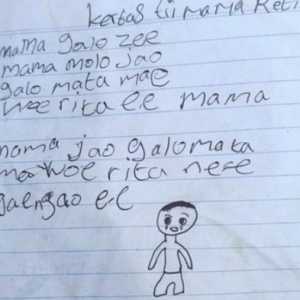 kertas tii mama Reti
mama galo zee
mama molo Jao
galo mata mae
woe rita ee mama
mama jao galo mata
ma woe rita nefe
gaengao ee